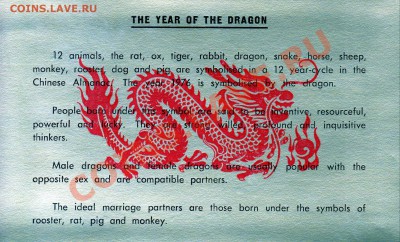 COINS.LAVE.RU
THE YEAR OF THE DRAGON
12 animals, the rat, ox, tiger, rabbit, dragon, snake, horse, sheep,
monkey, rooster, dog and pig are symbolised in a 12 year-cycle in the
Chinese Almanac. The year 1976 is symbolised by the dragon.
People born under this symbol are said to be inventive, resourceful,
powerful and lucky. They are strong willed, profound and inquisitive
thinkers.
Male dragons and female dragons are usually popular with the
opposite sex and are compatible partners.
The ideal marriage partners are those born under the symbols of
rooster, rat, pig and monkey.